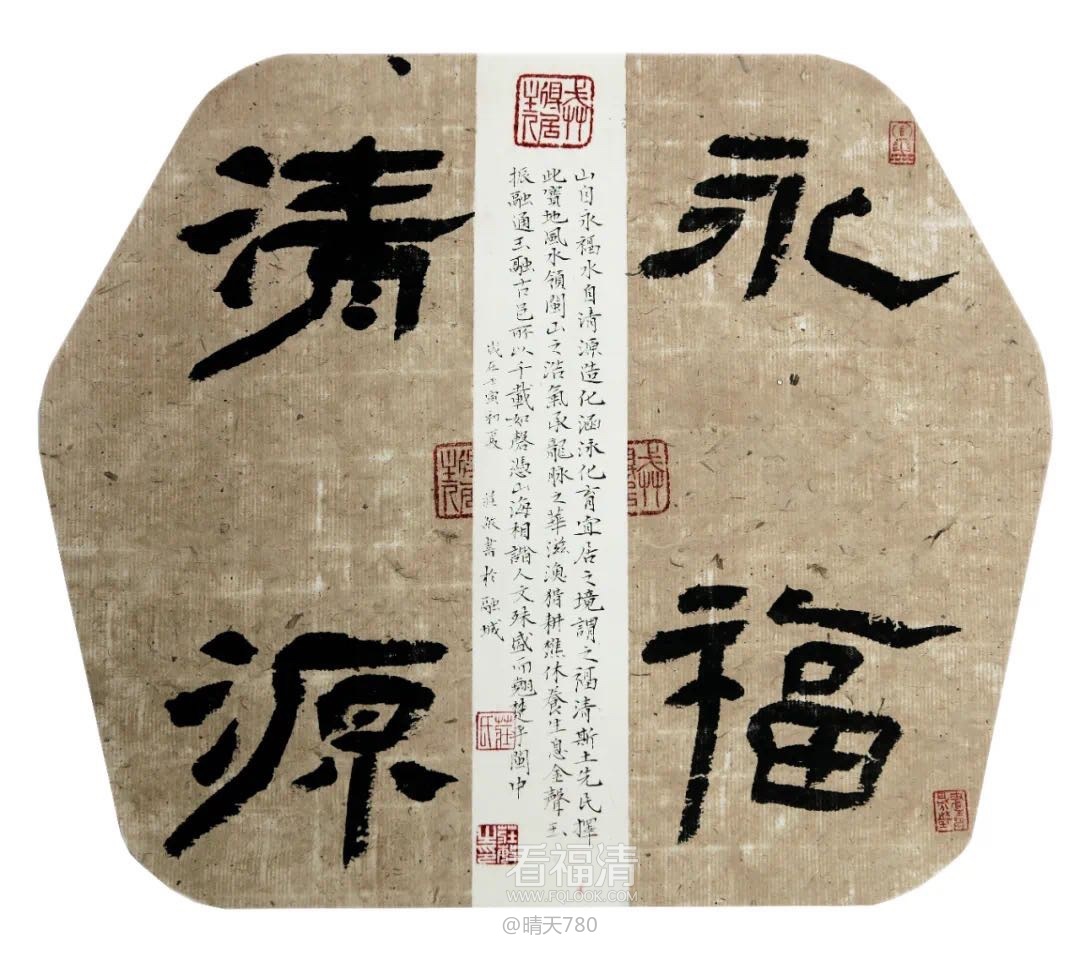 永福
山自永福水自清源造化涵泳化育宜居之境謂之福清斯土先民擇
此寶地風水領閩山之浩氣承龍脉之華滋漁獵耕樵休養生息金聲玉
振融通玉融古邑所以千載如磬憑山海相諧人文殊盛而翹楚乎閩中
歲在壬寅初夏 書於融城
莊氏
清源
看福清
WWW.FQLOOK.COM
@晴天780